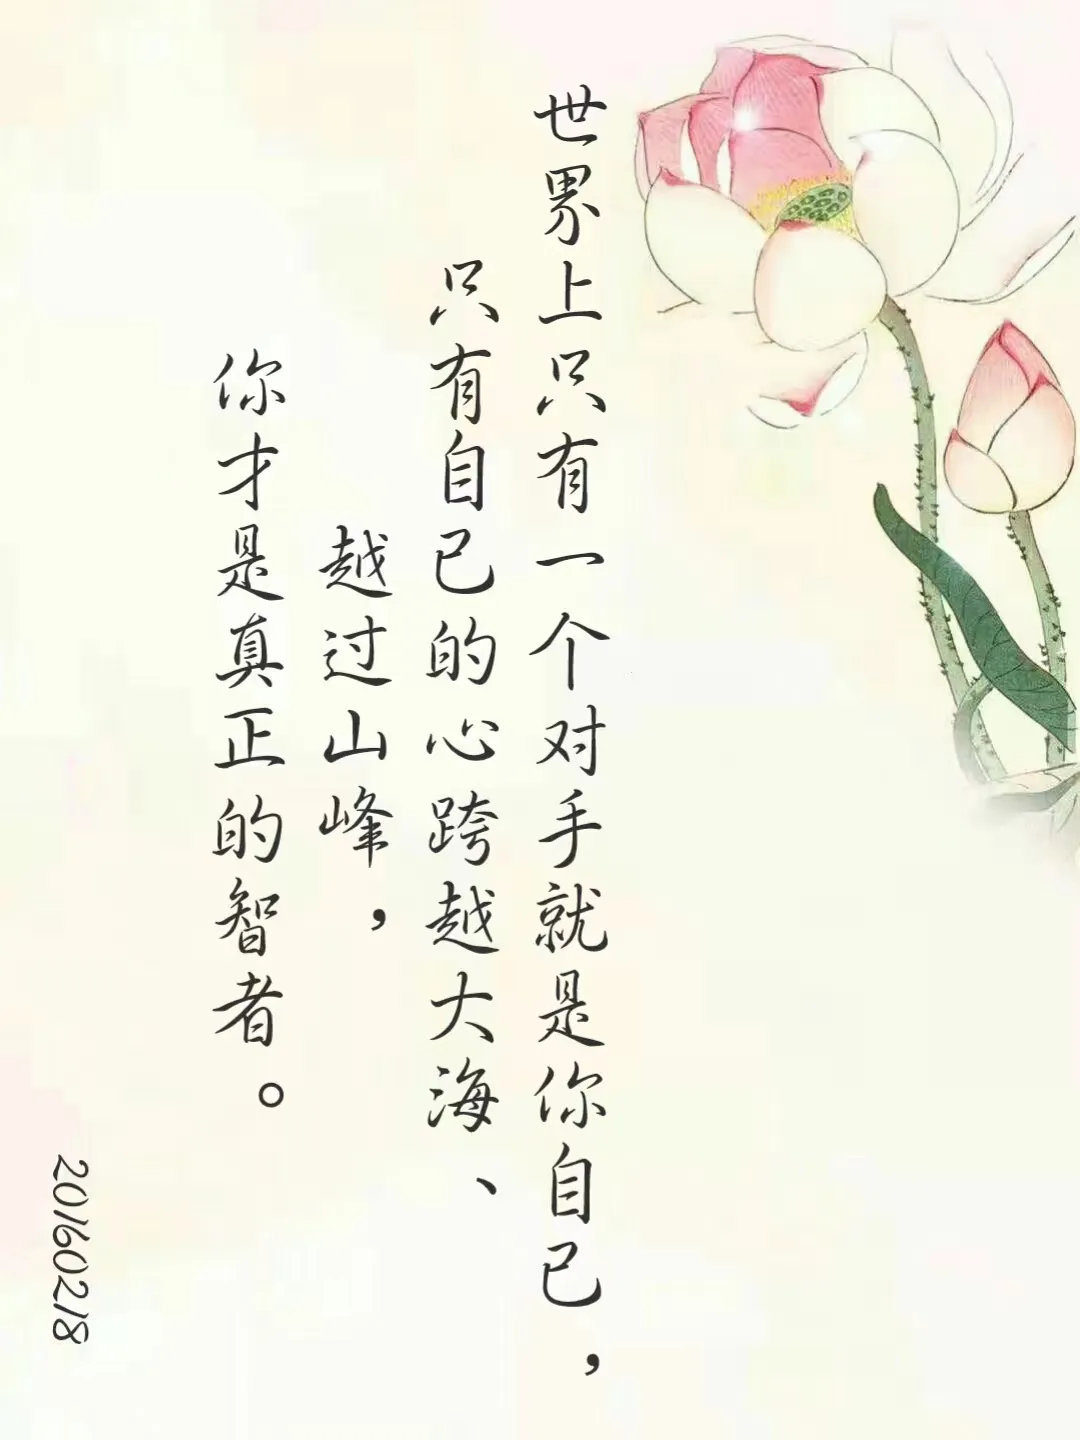 世界上只有一个对手就是你自已，
只有自已的心跨越大海、
越过山峰，
你才是真正的智者。
20160218